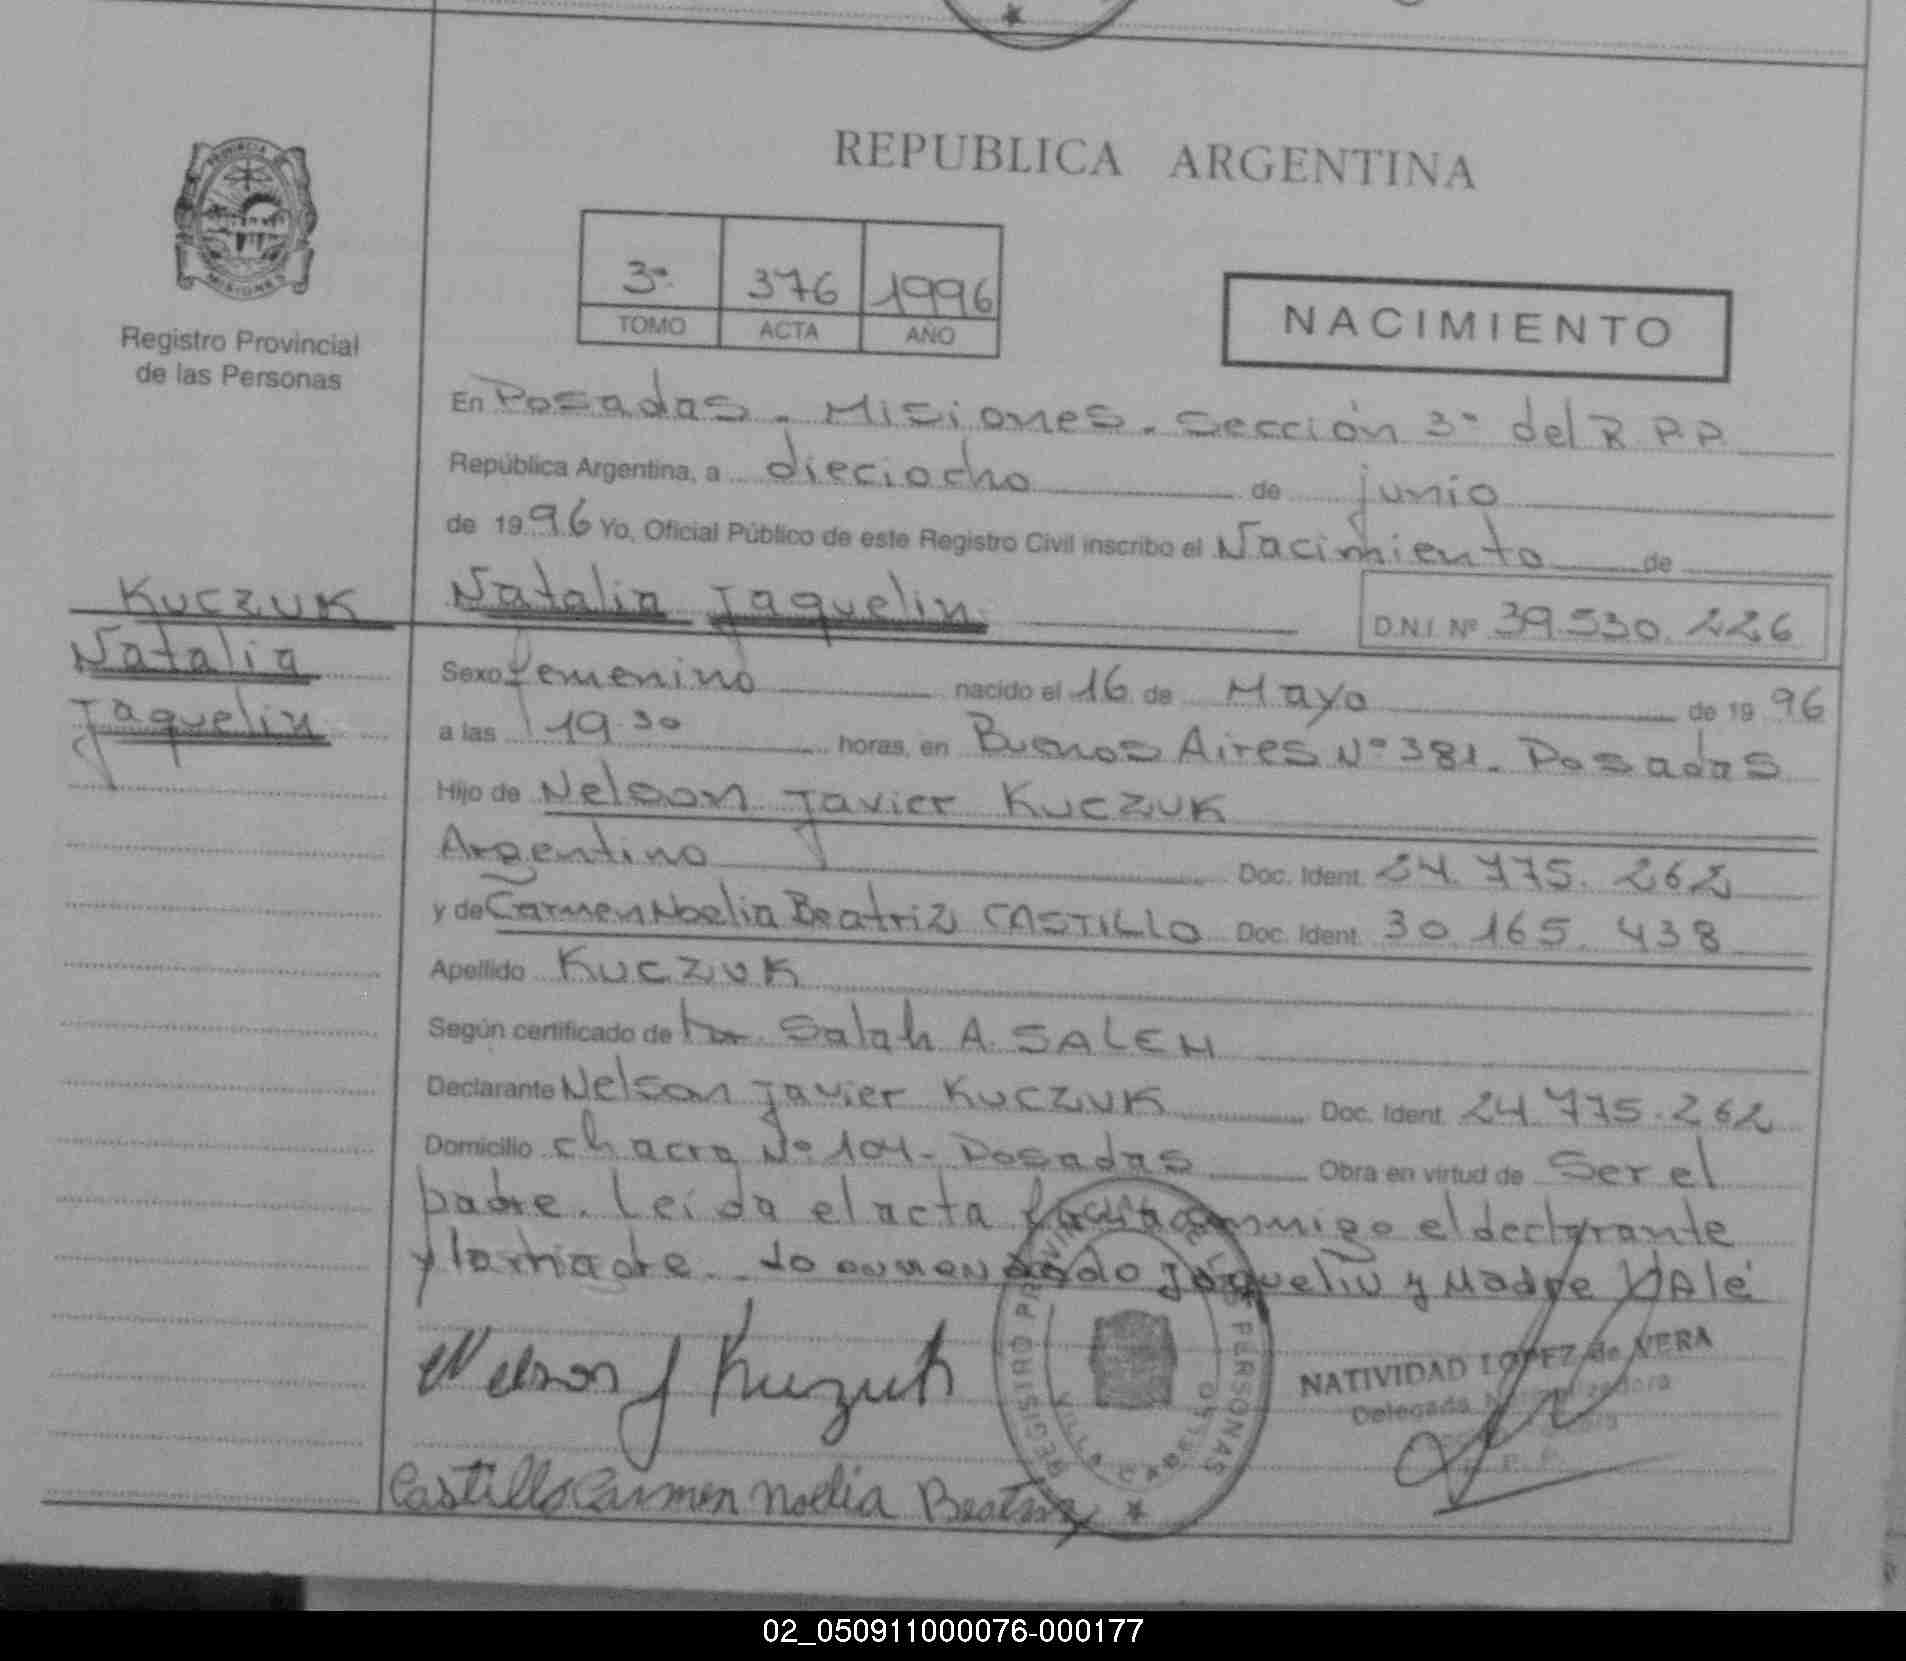 REPUBLICA ARGENTINA
PROVINCIA
MISIONES
Registro Provincial
de las Personas
3º 376 1996
TOMO ACTA AÑO
NACIMIENTO
En Posadas. Misiones. Sección 3º del R.P.P.
República Argentina, a dieciocho de junio
de 1996 Yo, Oficial Público de este Registro Civil inscribo el Nacimiento de
Natalia Jaquelin D.N.I. Nº 39.530.226
KUCZUK
Natalia
Jaquelin
Sexo femenino nacido el 16 de Mayo de 1996
a las 19.30 horas, en Buenos Aires Nº 381. Posadas
Hijo de Nelson Javier KUCZUK
Argentino Doc. Ident. 24.775.262
y de Carmen Noelia Beatriz CASTILLO Doc. Ident. 30.165.438
Apellido KUCZUK
Según certificado de Salah A. SALEM
Declarante Nelson Javier KUCZUK Doc. Ident. 24.775.262
Domicilio chacra Nº 104- Posadas Obra en virtud de Ser el
padre. Leída el acta conmigo el declarante
y la madre. Jaquelin y Madre VAlé
REGISTRO PROVINCIAL DE LAS PERSONAS
NATIVIDAD LOPEZ de VERA
Delegada
Nelson J Kuczuk
Castillo Carmen Noelia Beatriz
02_050911000076-000177